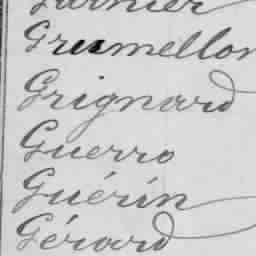 Garnier
Grumellon
Grignard
Guerro
Guérin
Gérard